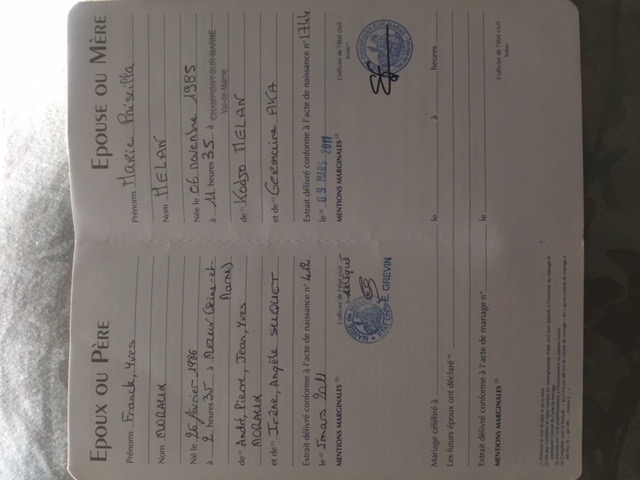 EPOUX OU PÈRE
Prénoms Franck, Yves
Nom MORAUX
Né le 26 février 1986
à 2 heures 35 à MELUN (Seine-et-
Marne)
de André, Pierre, Jean, Yves
MORAUX
et de Irène, Angèle SUQUET
Extrait délivré conforme à l'acte de naissance n°
le mars 2011
L'officier de l'état civil
MENTIONS MARGINALES
E. GREVIN
EPOUSE OU MÈRE
Prénoms Marie Priscilla
Nom MELAN
Née le 06 novembre 1985
à 11 heures 35 à CHAMPIGNY-SUR-MARNE
Val-de-Marne
de Kodjo MELAN
et de Germaine AKA
Extrait délivré conforme à l'acte de naissance n° 1744
le 09 MARS 2011
L'officier de l'état civil
Sceau
MENTIONS MARGINALES
Mariage célébré à le à heures
Les futurs époux ont déclaré
Extrait délivré conforme à l'acte de mariage n° le
L'officier de l'état civil
Sceau
MENTIONS MARGINALES